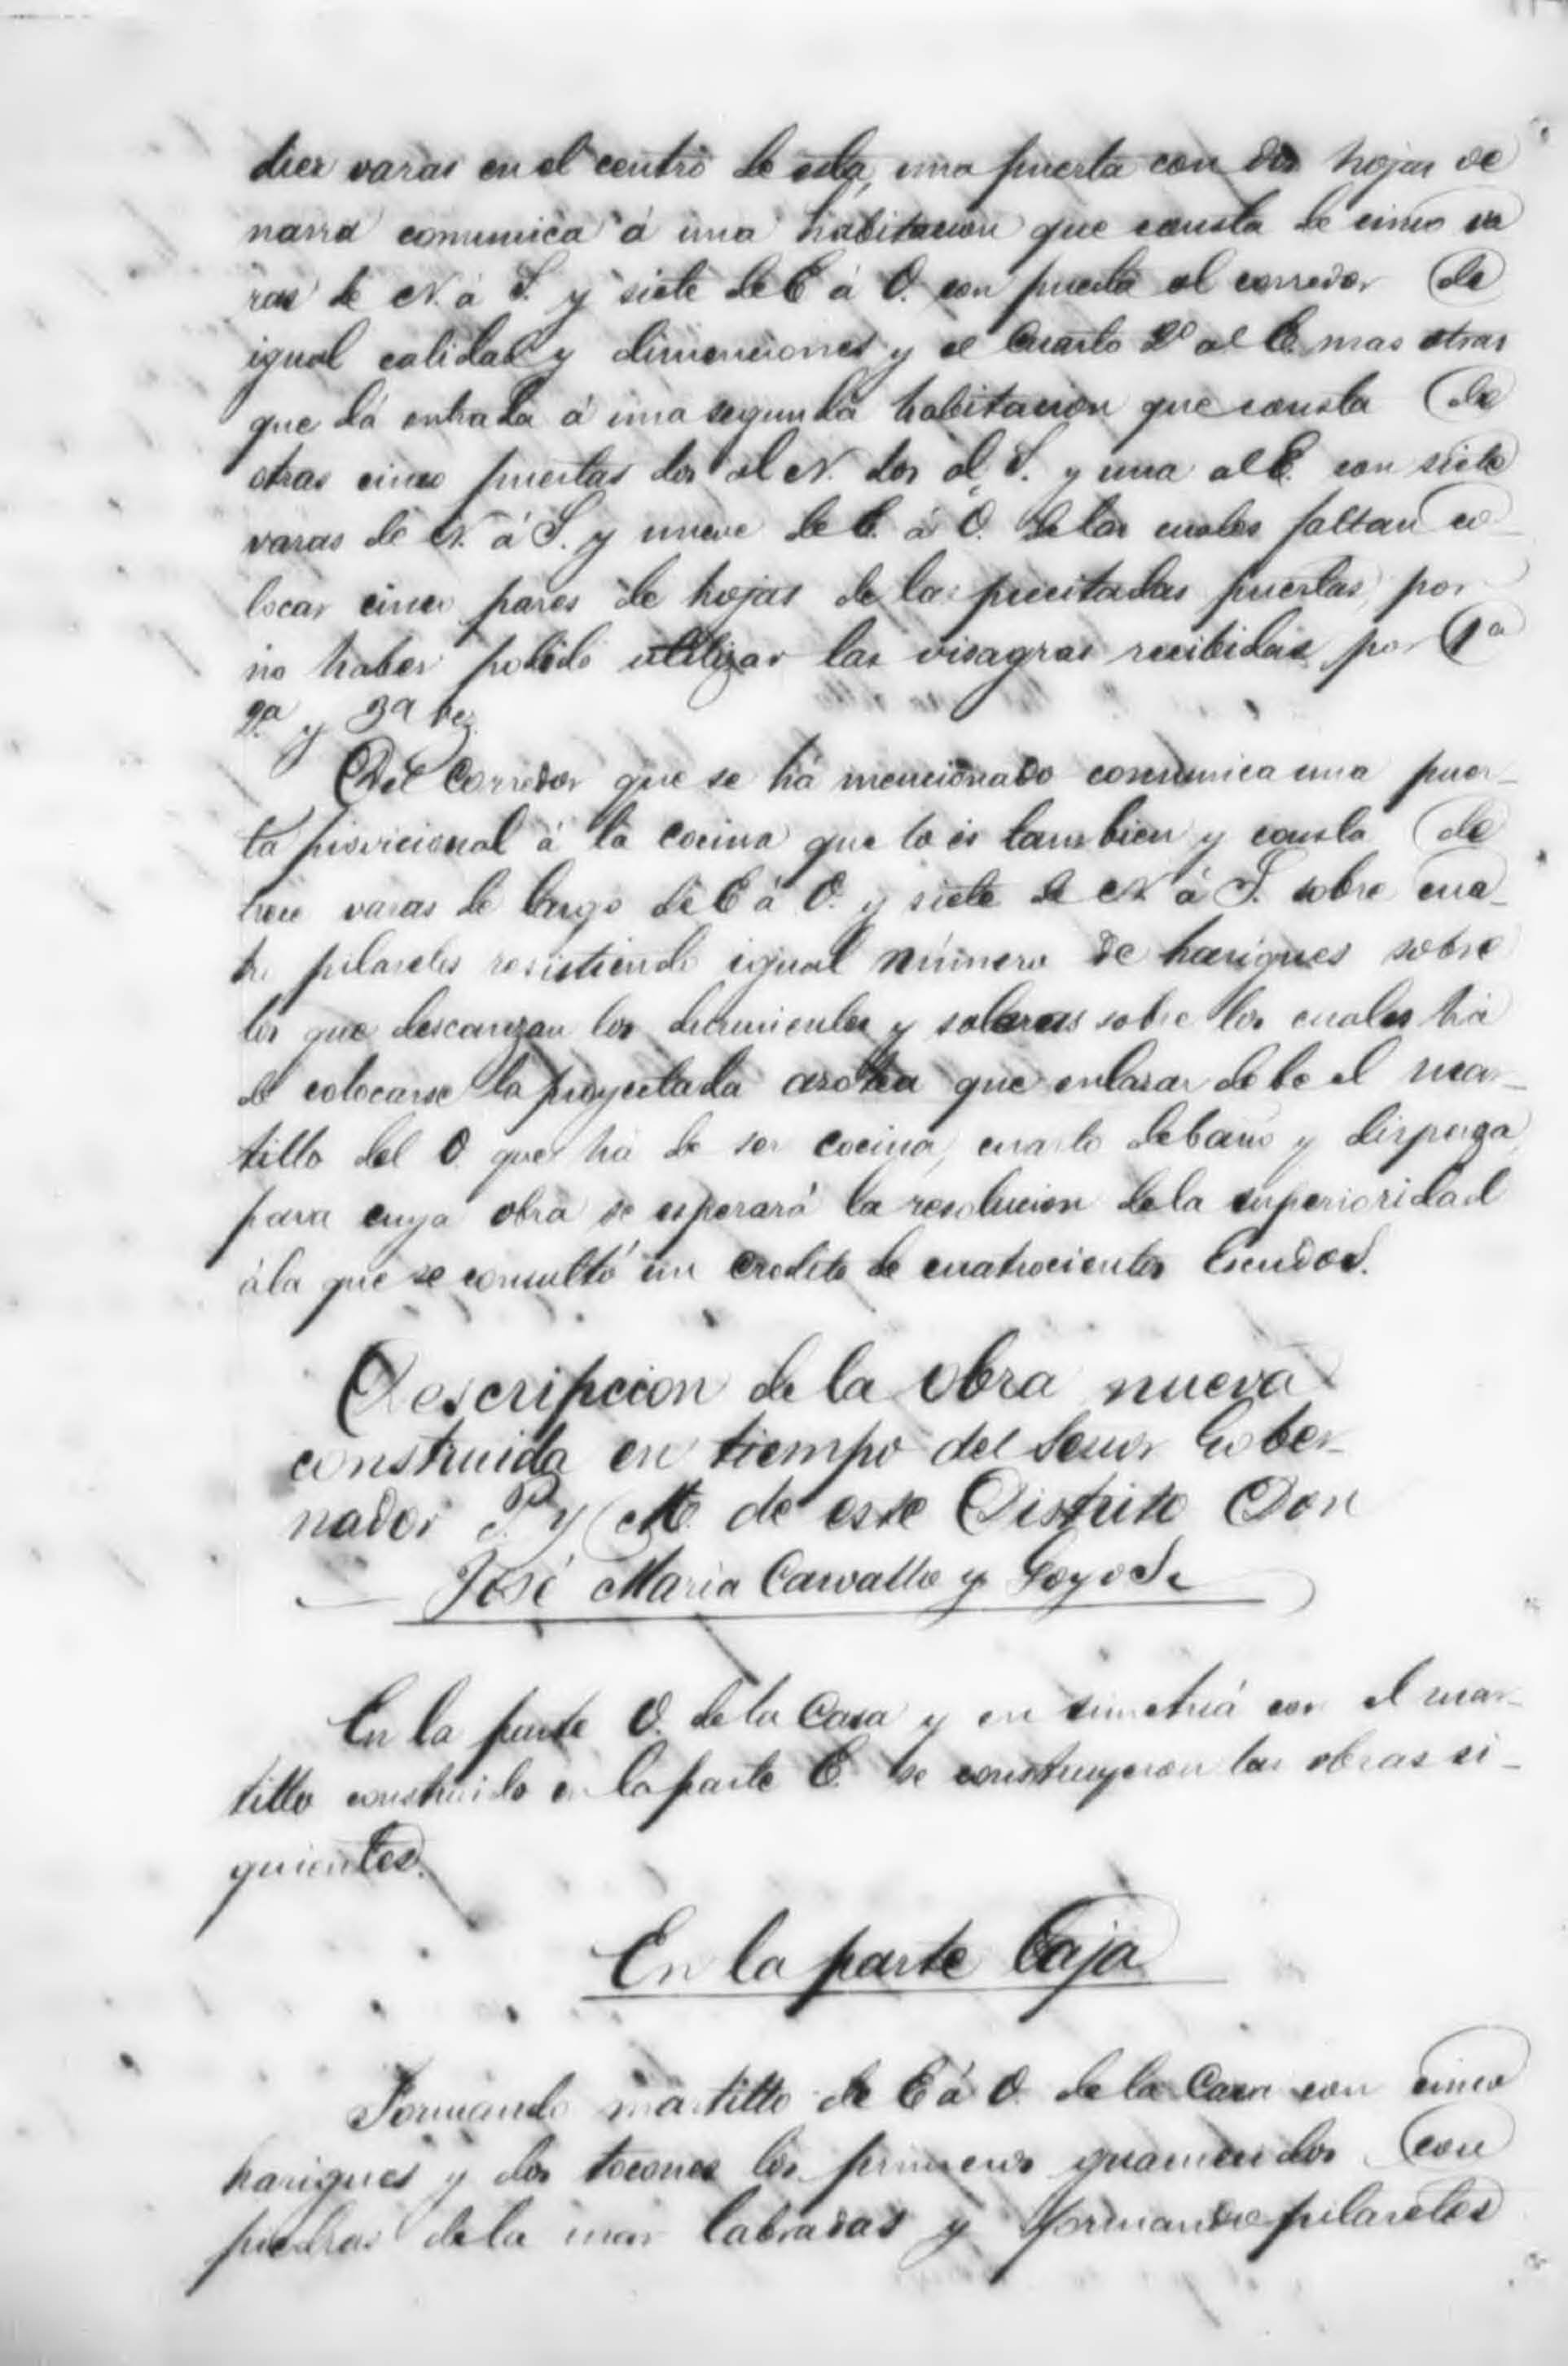 diez varas en el centro de esta, una puerta con dos hojas de
narra comunica á una habitacion que consta de cinco va
ras de N. á S. y siete de E á O. con puerta al corredor de
igual calidad y dimenciones y el Cuarto 2º al E. mas otras
que dá entrada á una segunda habitacion que consta de
otras cinco puertas dos al N. dos al S. y una al E. con siete
varas de N. á S. y nueve de E. á O. de las cuales faltan co
locar cinco pares de hojas de las precitadas puertas, por
no haber podido utilizar las visagras recibidas por 1ª
2ª y 3ª vez.
Del Corredor que se há mencionado comunica una puer-
ta provicional á la cocina que lo es tambien y consta de
trece varas de largo de E á O. y siete de N. á S. sobre cua-
tro pilareles resistiendo igual número de harigues sobre
los que descanzan los durmientes y soleras sobre los cuales há
de colocarse la proyectada azotea que enlazar debe el mar-
tillo del O. que há de ser cocina, cuarto de baño y dispensa,
para cuya obra se esperará la resolucion de la superioridad
á la que se consultó un credito de cuatrocientos Escudos.
Descripcion de la obra nueva
construida en tiempo del Señor Gober-
nador P. y M. de este Distrito Don
José Maria Carvallo y Goyos.
En la parte O. de la Casa y en simetriá con el mar-
tillo construido en la parte E. se construyeron las obras si-
guientes.
En la parte baja
Formando martillo de E á O. de la Casa con cinco
harigues y dos tocones los primeros guarnecidos con
piedras de la mar labradas y formando pilareles